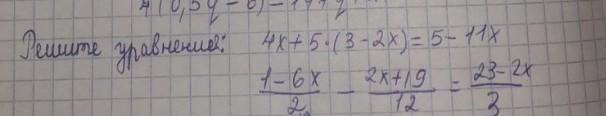 4(0,5q-6)-
Решите уравнения: 4x+5·(3-2x)=5-11x
1-6x/2 - 2x+19/12 = 23-2x/3